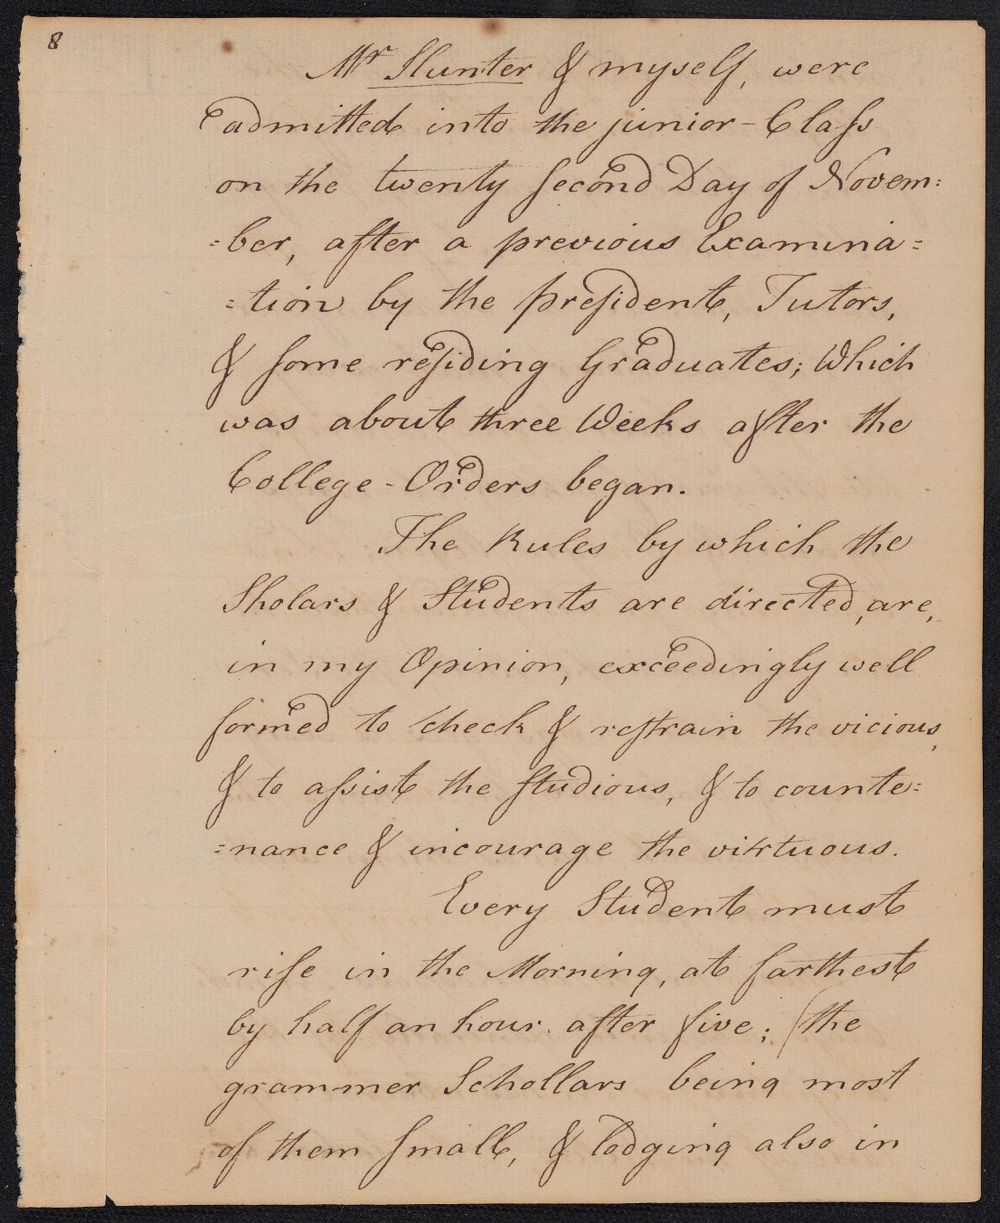 8
Mr Hunter & myself, were
admitted into the junior-Class
on the twenty second Day of Novem:
:ber, after a previous Examina:
:tion by the president, Tutors,
& some residing Graduates; Which
was about three Weeks after the
College-Orders began.
The Rules by which the
Sholars & Students are directed, are,
in my Opinion, exceedingly well
formed to check & restrain the vicious,
& to assist the studious, & to counte:
:nance & incourage the virtuous.
Every Student must
rise in the Morning, at farthest
by half an hour after five; (the
grammer Schollars being most
of them small, & lodging also in